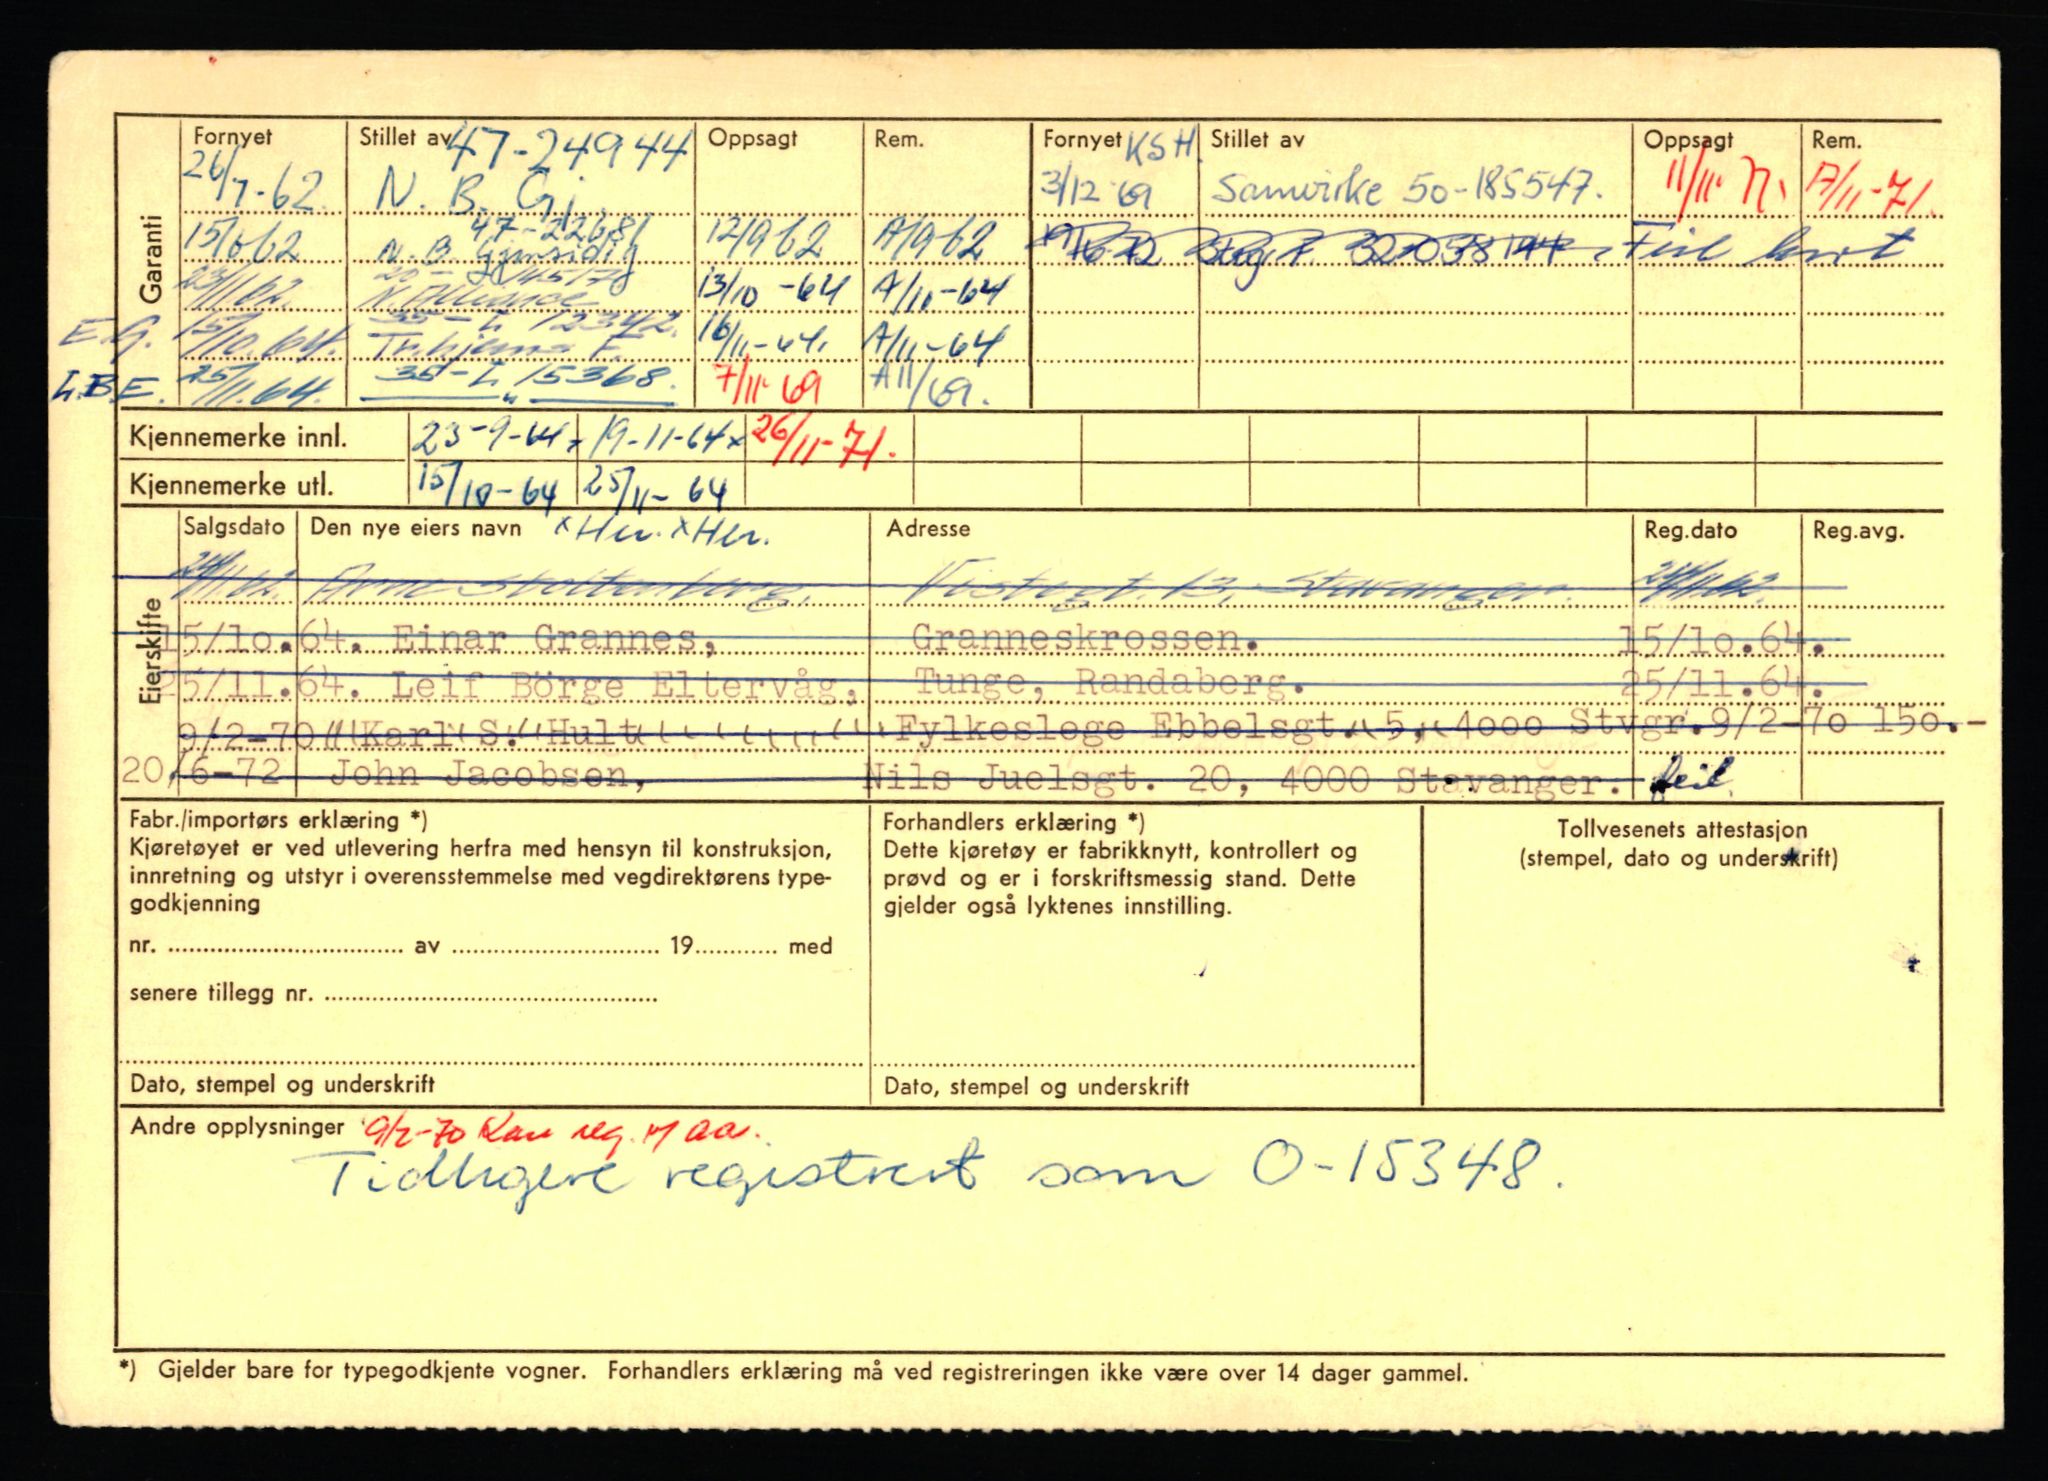 Garanti
Fornyet Stillet av 47-24944 Oppsagt Rem. Fornyet KSH. Stillet av Oppsagt Rem.
26/7-62. N. B. Gj. 3/12 69 Samvirke 50-185547. 11/11 71. A/11-71.
47-22681
15/8 62 N. B. Gjensidig 12/9 62 A/9 62 Feil kort
20- 
23/11.62. N. Alliance 13/10 -64 A/10-64
35-L 12342.
E.G. 15/10.64. Tr.hjems F. 16/11-64. A/11-64
L.B.E. 25/11.64. 35-L 15368. 7/11-69 A11/69.
Kjennemerke innl. 23-9-64x 19-11-64x 26/11-71.
Kjennemerke utl. 15/10-64 25/11-64
Eierskifte
Salgsdato Den nye eiers navn xHer. xHer. Adresse Reg.dato Reg.avg.
24/11.62. Arne Stoltenberg, 13, Stavanger. 24/11.62.
15/10.64. Einar Grannes, Granneskrossen. 15/10.64.
25/11.64. Leif Börge Eltervåg, Tunge, Randaberg. 25/11.64.
9/2-70 Karl S. Hult Fylkeslege Ebbelsgt. 5, 4000 Stvgr. 9/2-70 150.-
20/6-72 John Jacobsen, Nils Juelsgt. 20, 4000 Stavanger. feil.
Fabr./importørs erklæring *)
Kjøretøyet er ved utlevering herfra med hensyn til konstruksjon,
innretning og utstyr i overensstemmelse med vegdirektørens type-
godkjenning
nr. .......... av .......... 19.......... med
senere tillegg nr. ..........
Dato, stempel og underskrift
Forhandlers erklæring *)
Dette kjøretøy er fabrikknytt, kontrollert og
prøvd og er i forskriftsmessig stand. Dette
gjelder også lyktenes innstilling.
Dato, stempel og underskrift
Tollvesenets attestasjon
(stempel, dato og underskrift)
Andre opplysninger 9/2-70 Kan reg.
Tidligere registrert som O-15348.
*) Gjelder bare for typegodkjente vogner. Forhandlers erklæring må ved registreringen ikke være over 14 dager gammel.